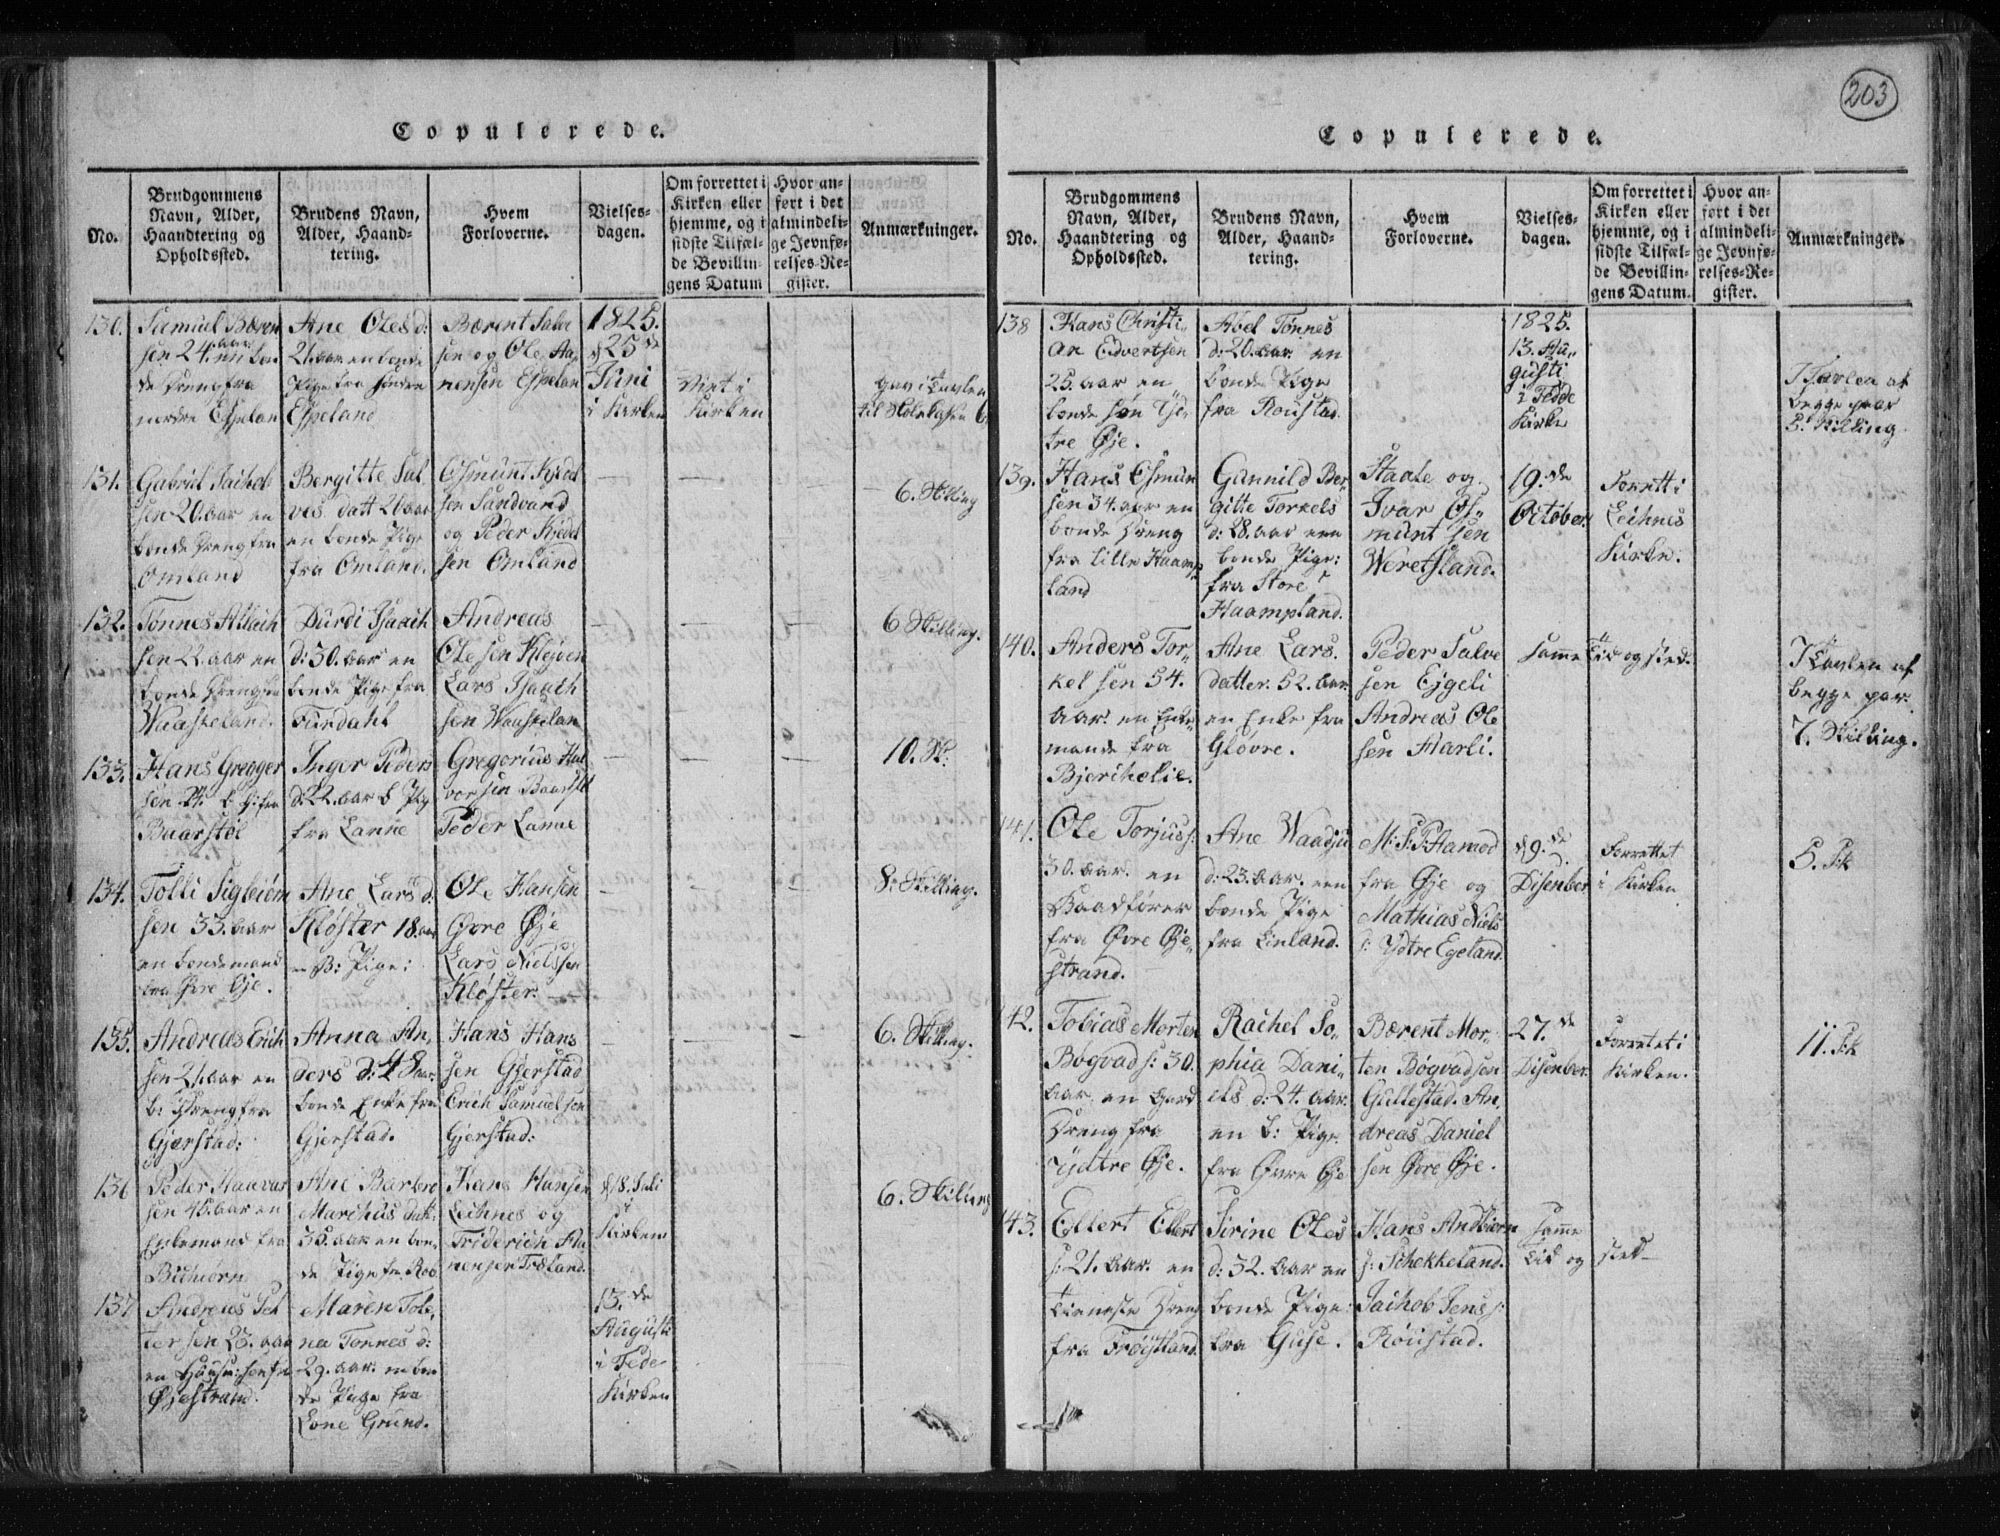 203
Copulerede.
No.
Brudgommens
Navn, Alder,
Haandtering og
Opholdssted.
Brudens Navn,
Alder, Haand-
tering.
Hvem
Forloverne.
Vielses-
dagen.
Om forrettet i
Kirken eller
hjemme, og i
sidste Tilfæl-
de Bevillin-
gens Datum
Hvor an-
ført i det
almindeli-
ge Jevnfø-
relses-Re-
gister.
Anmærkninger.
130.
Samuel Bæren
sen 24. aar en bon
de Dreng fra
nordre Espelan
Ane Oles d:
21. aar en bonde
Pige fra
Espeland
Bærent Salve
sen og Ole Aa-
nensen Espelan
1825.
d 25 de
Juni
i Kirken
Viet i
Kirken
gav i Tavlen
6
131.
Gabriel Jaikob
sen 20. aar en
bonde Dreng fra
Omland
Bergitte Sal
ves datt 20 aar
en bonde Pige
fra Omland.
Osmunt Kjedel
sen Sandvand
og Peder Kjedel
sen Omland
6. Skilling
132.
Tønnes Aslach
sen 22. aar en
bonde Dreng fra
Waaskeland.
Durdi Isaach
d: 30. aar en
bonde Pige fra
Furdahl
Andreas
Ole sen Kleyven
Lars Isaach
sen Waaskelan
6 Skilling.
133.
Hans Gregger
sen 24. fra
Baarstøl
Inger Peders
d: 22. aar b Pig
fra Lanne
Gregorius Hal
vor sen Baarstøl
Peder Lanne
10. Sk:
134.
Tolli Sigbiørn
sen 33. aar
en bondemand
fra Øvre Øje.
Ane Lars d.
Kløster 18. aar
en B: Pige:
Ole Hansen
Øvre Øje
Lars Nielssen
Kløster.
8: Skilling.
135.
Andreas Erich
sen 21. aar en
b: Dreng fra
Gjærstad:
Anna An,
ders d: 48 aar.
bonde Enke fra
Gjerstad.
Hans Hans
sen Gjerstad
Erich Samuel sen
Gjerstad:
6. Skilling.
136
Peder Haavar
sen 45. aar en
Enkemand fra
Ane Barbro
Marchus datt:
35. aar en bon-
de Pige fra Roo
Hans Hansen
Leihnes og
Friderich Aa
nensen Træland.
d 18. Juli
i
Kirken
6. Skilling
137
Andreas Pet
ter sen 23. aar
en
Øjestrand.
Maren Tole,
na Tønnes d:
29. aar. en bon
de Pige fra
Lone Grund.
13. de
Augusti
i Fede
Kirken
Copulerede.
No.
Brudgommens
Navn, Alder,
Haandtering og
Opholdssted.
Brudens Navn,
Alder, Haand-
tering.
Hvem
Forloverne.
Vielses-
dagen.
Om forrettet i
Kirken eller
hjemme, og i
sidste Tilfæl-
de Bevillin-
gens Datum.
Hvor an-
ført i det
almindeli-
ge Jevnfø-
relses-Re-
gister.
Anmærkninger.
138
Hans Christi,
an Edvertsen
25. aar en
bonde søn Yd
tre Øje.
Abel Tønnes
d: 20. aar en
bonde Pige
fra Roustad.
1825.
13. Au,
gusti
i Fedde
Kirke
I Tavlen af
begge par
5. Skilling.
139.
Hans Osmun
sen 34. aar en
bonde Dreng
fra Lille Haamp
land
Gunnild Ber
gitte Torkels
d: 28. aar een
bonde Pige:
fra Store
Haampland.
Staale og
Ivar Os
munt sen
Weretsland.
19. de
October.
Forrett i
Leihnes
Kirke.
140.
Anders Tor
kel sen 54.
aar. en Enke
mand fra
Bjerihelie.
Ane Lars.
datter. 52. aar.
en Enke fra
Gløvre.
Peder Salve
sen Ejgeli
Andreas Ole
sen Aarli.
samme Tid og sted.
I Tavlen af
begge par.
7. Skilling.
141.
Ole Torjus s:
30. aar. en
Baadfører
fra Øvre Øje,
strand.
Ane Waadju
d: 23. aar. een
bonde Pige
fra Linland.
M: S: P. Hamod
fra Øje og
Mathias Niels
s: Ydtre Egeland.
d 9. de
Disenber
Forrettet
i Kirken
5. Sk
142.
Tobias Morten
Bøgvad s: 30.
aar. en Gard
Dreng fra
Ydtre Øje.
Rachel So,
phia Dani,
els d: 24. aar.
en b: Pige
fra Øvre Øje
Bærent Mor,
ten Bøgvadsen
Gullestad. An,
dreas Daniel
sen Øvre Øje.
27. de
Disenber.
Forretet i
Kirken.
11. Sk
143.
Ellert Ellert
s: 21. aar. en
tieneste Dreng
fra Frøistland.
Sirine Oles
d: 32. aar en
bonde Pige:
fra Guse.
Hans Andbiørn
s: Schekkeland.
Jaihob Jens s:
Røustad.
samme
Tid og sted